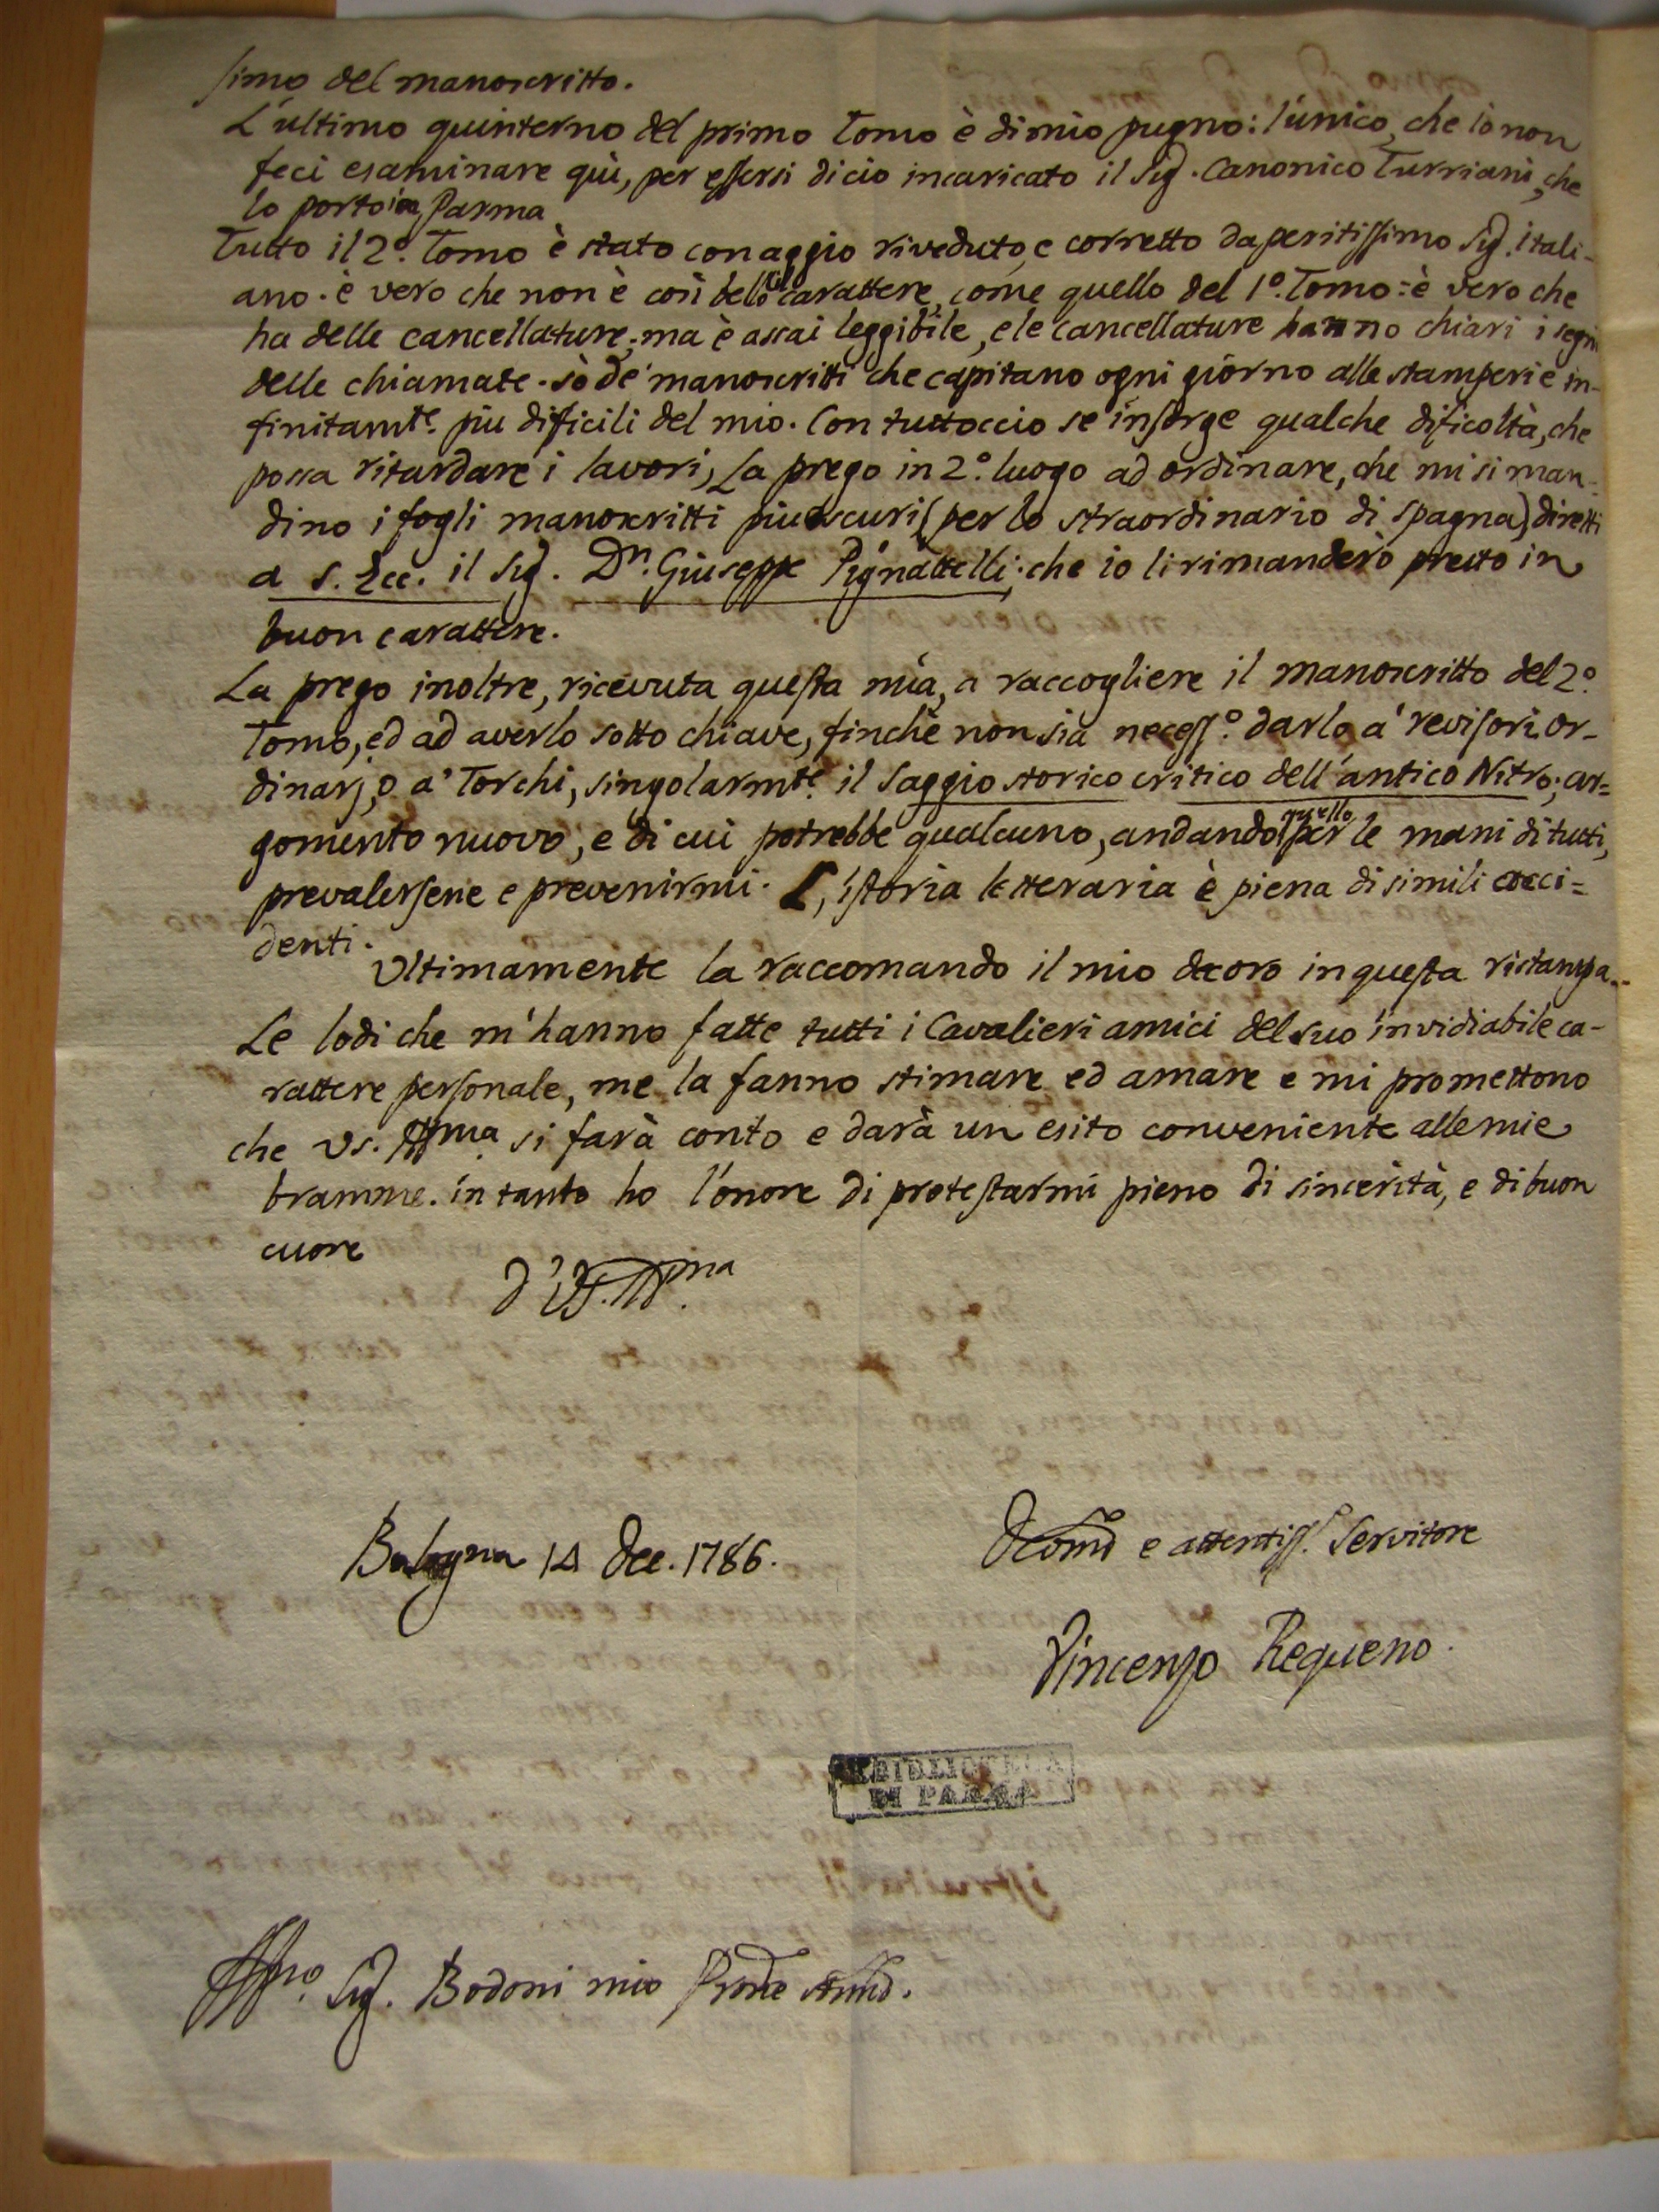 simo del manoscritto.
L'ultimo quinterno del primo Tomo è di mio pugno: l'unico, che io non
feci esaminare qui, per essersi di cio incaricato il Sig. Canonico Turriani, che
lo porto in Parma
Tutto il 2º. Tomo è stato con aggio riveduto, e corretto da peritissimo Sig. itali-
ano. è vero che non è così bello il carattere, come quello del 1º. Tomo: è vero che
ha delle cancellature; ma è assai leggibile, e le cancellature hanno chiari i segni
delle chiamate. sò de' manoscritti che capitano ogni giorno alle stamperie in-
finitamte. piu dificili del mio. Con tuttoccio se insorge qualche dificoltà, che
possa ritardare i lavori, La prego in 2º. luogo ad ordinare, che mi si man-
dino i fogli manoscritti piu oscuri (per lo straordinario di Spagna) diretti
a S. Ecc. il Sig. Dn. Giuseppe Pignattelli; che io li rimanderò presto in
buon carattere.
La prego inoltre, ricevuta questa mia, a raccogliere il manoscritto del 2º.
Tomo, ed ad averlo sotto chiave, finchè non sia necessº. darlo a' revisori or-
dinarj, o a' Torchi, singolarmte. il Saggio storico critico dell'antico Nitro; ar=
gomento nuovo, e di cui potrebbe qualcuno, andando quello per le mani di tutti,
prevalersene e prevenirmi. L'istoria letteraria è piena di simili acci=
denti.
Ultimamente la raccomando il mio decoro in questa ristampa..
Le lodi che m'hanno fatte tutti i Cavalieri amici del suo invidiabile ca-
rattere personale, me la fanno stimare ed amare e mi promettono
che Vs. Illma. si farà conto e darà un esito conveniente alle mie
bramme. in tanto ho l'onore di protestarmi pieno di sincerità, e di buon
cuore
d'Vs. Illma.
Bologna 14 Dec. 1786.
Devmo e attentiss. Servitore
Vincenzo Requeno.
BIBLIOTECA
DI PARMA
Illmo. Sig. Bodoni mio Prone stimo.